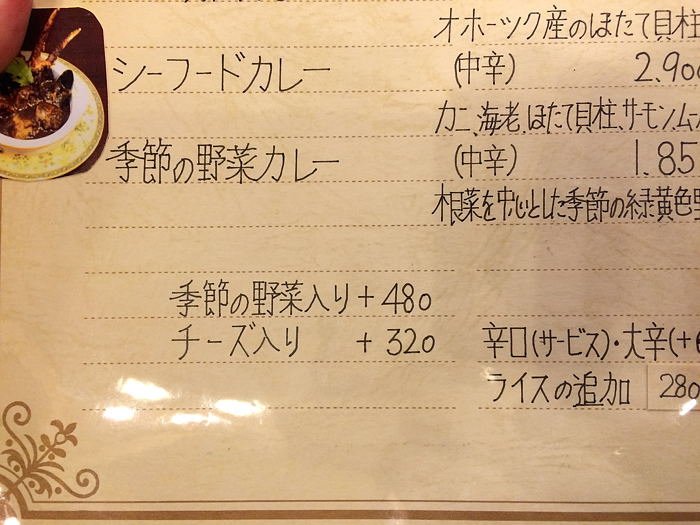 オホーツク産のほたて貝柱
シーフードカレー (中辛) 2.900
カニ、海老、ほたて貝柱、サーモン、ムー
季節の野菜カレー (中辛) 1.85
根菜を中心とした季節の緑黄色野
季節の野菜入り + 480
チーズ入り + 320 辛口(サービス)・大辛(+6
ライスの追加 280